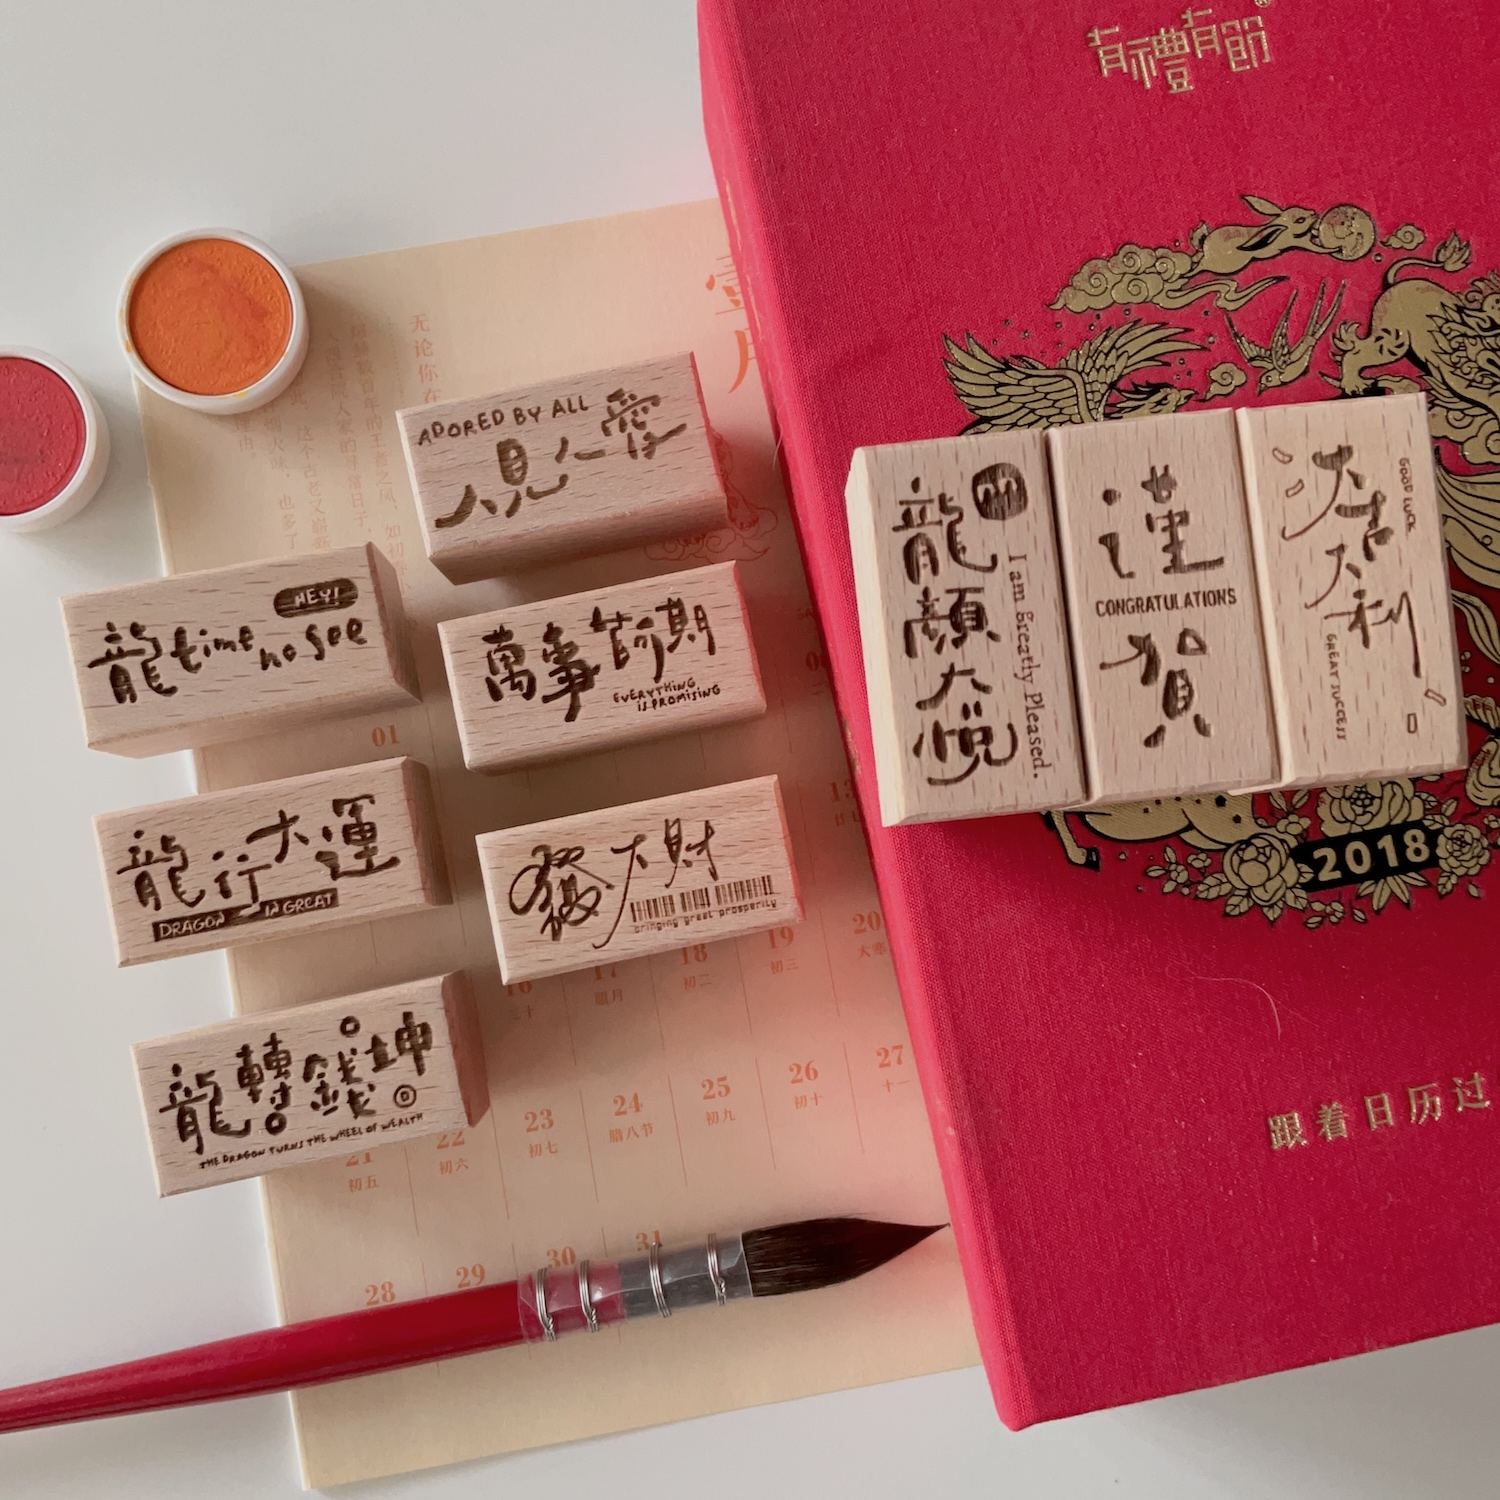 有禮有節
壹月
无论你在
ADORED BY ALL
人見人愛
HEY!
龍 time no see
萬事皆可期
EVERYTHING
IS PROMISING
龍行大運
DRAGON IN GREAT
發大財
bringing great prosperity
龍轉錢坤
THE DRAGON TURNS THE WHEEL OF WEALTH
龍顏大悅
I am greatly Pleased.
謹
CONGRATULATIONS
賀
大吉大利
GOOD LUCK
GREAT SUCCESS
2018
跟着日历过
01
13
16 17 18 19 20
腊月 初二 初三 大寒
21 22 23 24 25 26 27
初五 初六 初七 腊八节 初九 初十 十一
28 29 30 31